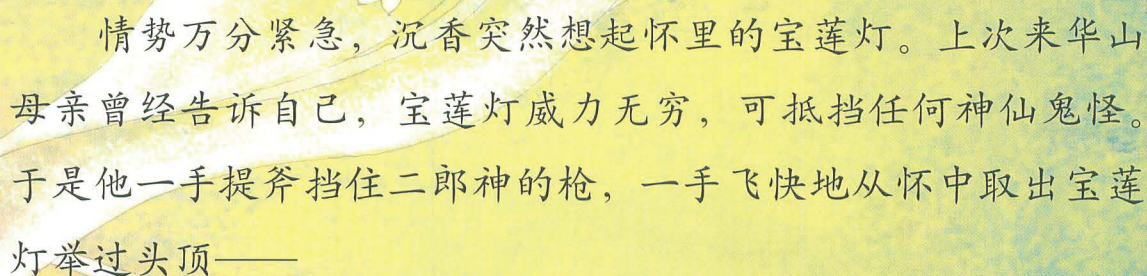 情势万分紧急，沉香突然想起怀里的宝莲灯。上次来华山
母亲曾经告诉自己，宝莲灯威力无穷，可抵挡任何神仙鬼怪。
于是他一手提斧挡住二郎神的枪，一手飞快地从怀中取出宝莲
灯举过头顶——